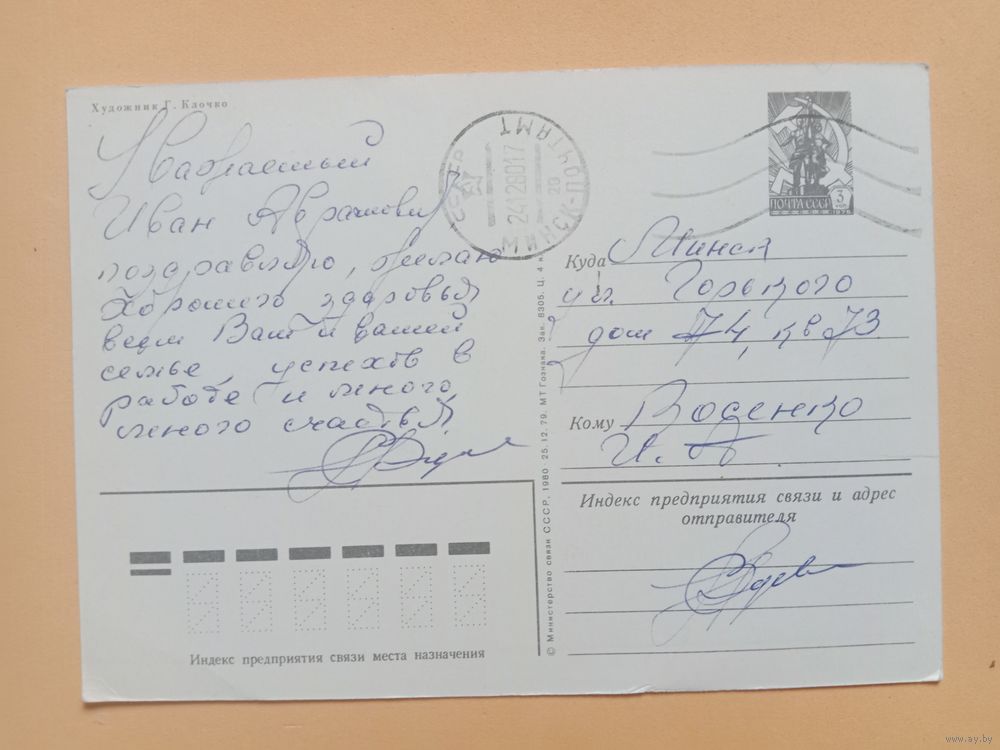 Художник Г. Клочко
Уважаемый
Иван Абрамович
поздравляю, желаю
хорошего здоровья
всем Вам и вашей
семье, успехов в
работе и много,
много счастья.
СССР
24128017
20
МИНСК-ПОЧТАМТ
ПОЧТА СССР
3
КОП
1976
Куда Минск
ул. Горького
дом 74, кв 73
Кому Восенко
И. А.
Индекс предприятия связи и адрес
отправителя
Индекс предприятия связи места назначения
© Министерство связи СССР, 1980 25.12.79. МТ Гознака. Зак. 8305. Ц. 4 к
www.ay.by